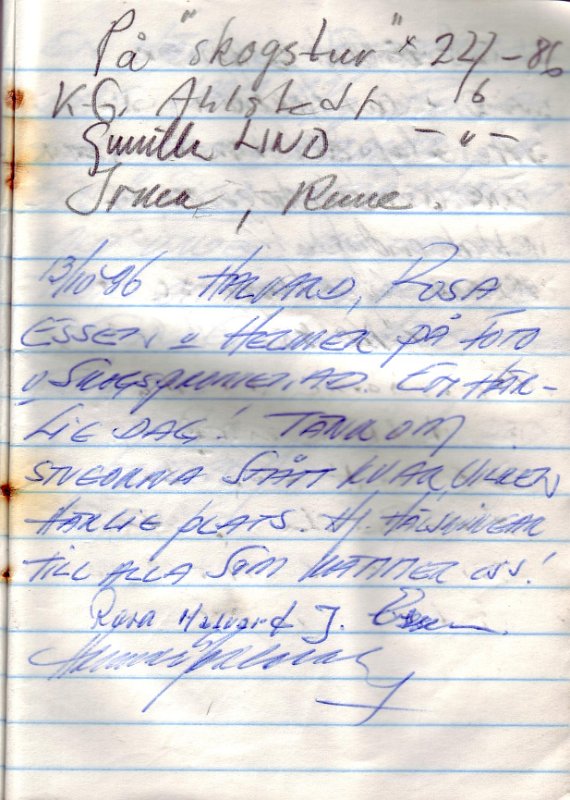 På "skogstur" 22/6 -86
K-G. Ahlstedt
Gunilla LIND — " —
Irma, Rune.
13/10 96 HALVARD, ROSA
ESSEN o HELMER PÅ FOTO
o SKOGSPROMENAD. EN HÄR-
LIG DAG! TÄNK OM
STUGORNA STÅTT KVAR VILKEN
HÄRLIG PLATS. HJ. HÄLSNINGAR
TILL ALLA SOM KÄNNER OSS!
Rosa Halvard J.